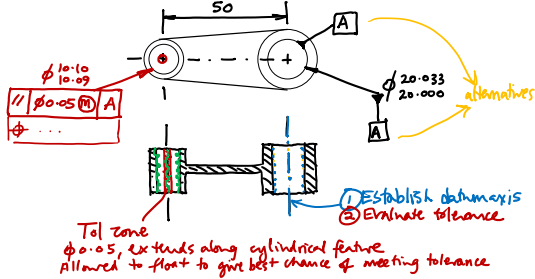 50
A
⌀ 10.10
10.09
⌀ 20.033
20.000
alternatives
// ⌀0.05 Ⓜ A
⌖ ...
A
① Establish datum axis
② Evaluate tolerance
Tol zone
⌀0.05, extends along cylindrical feature
Allowed to float to give best chance of meeting tolerance